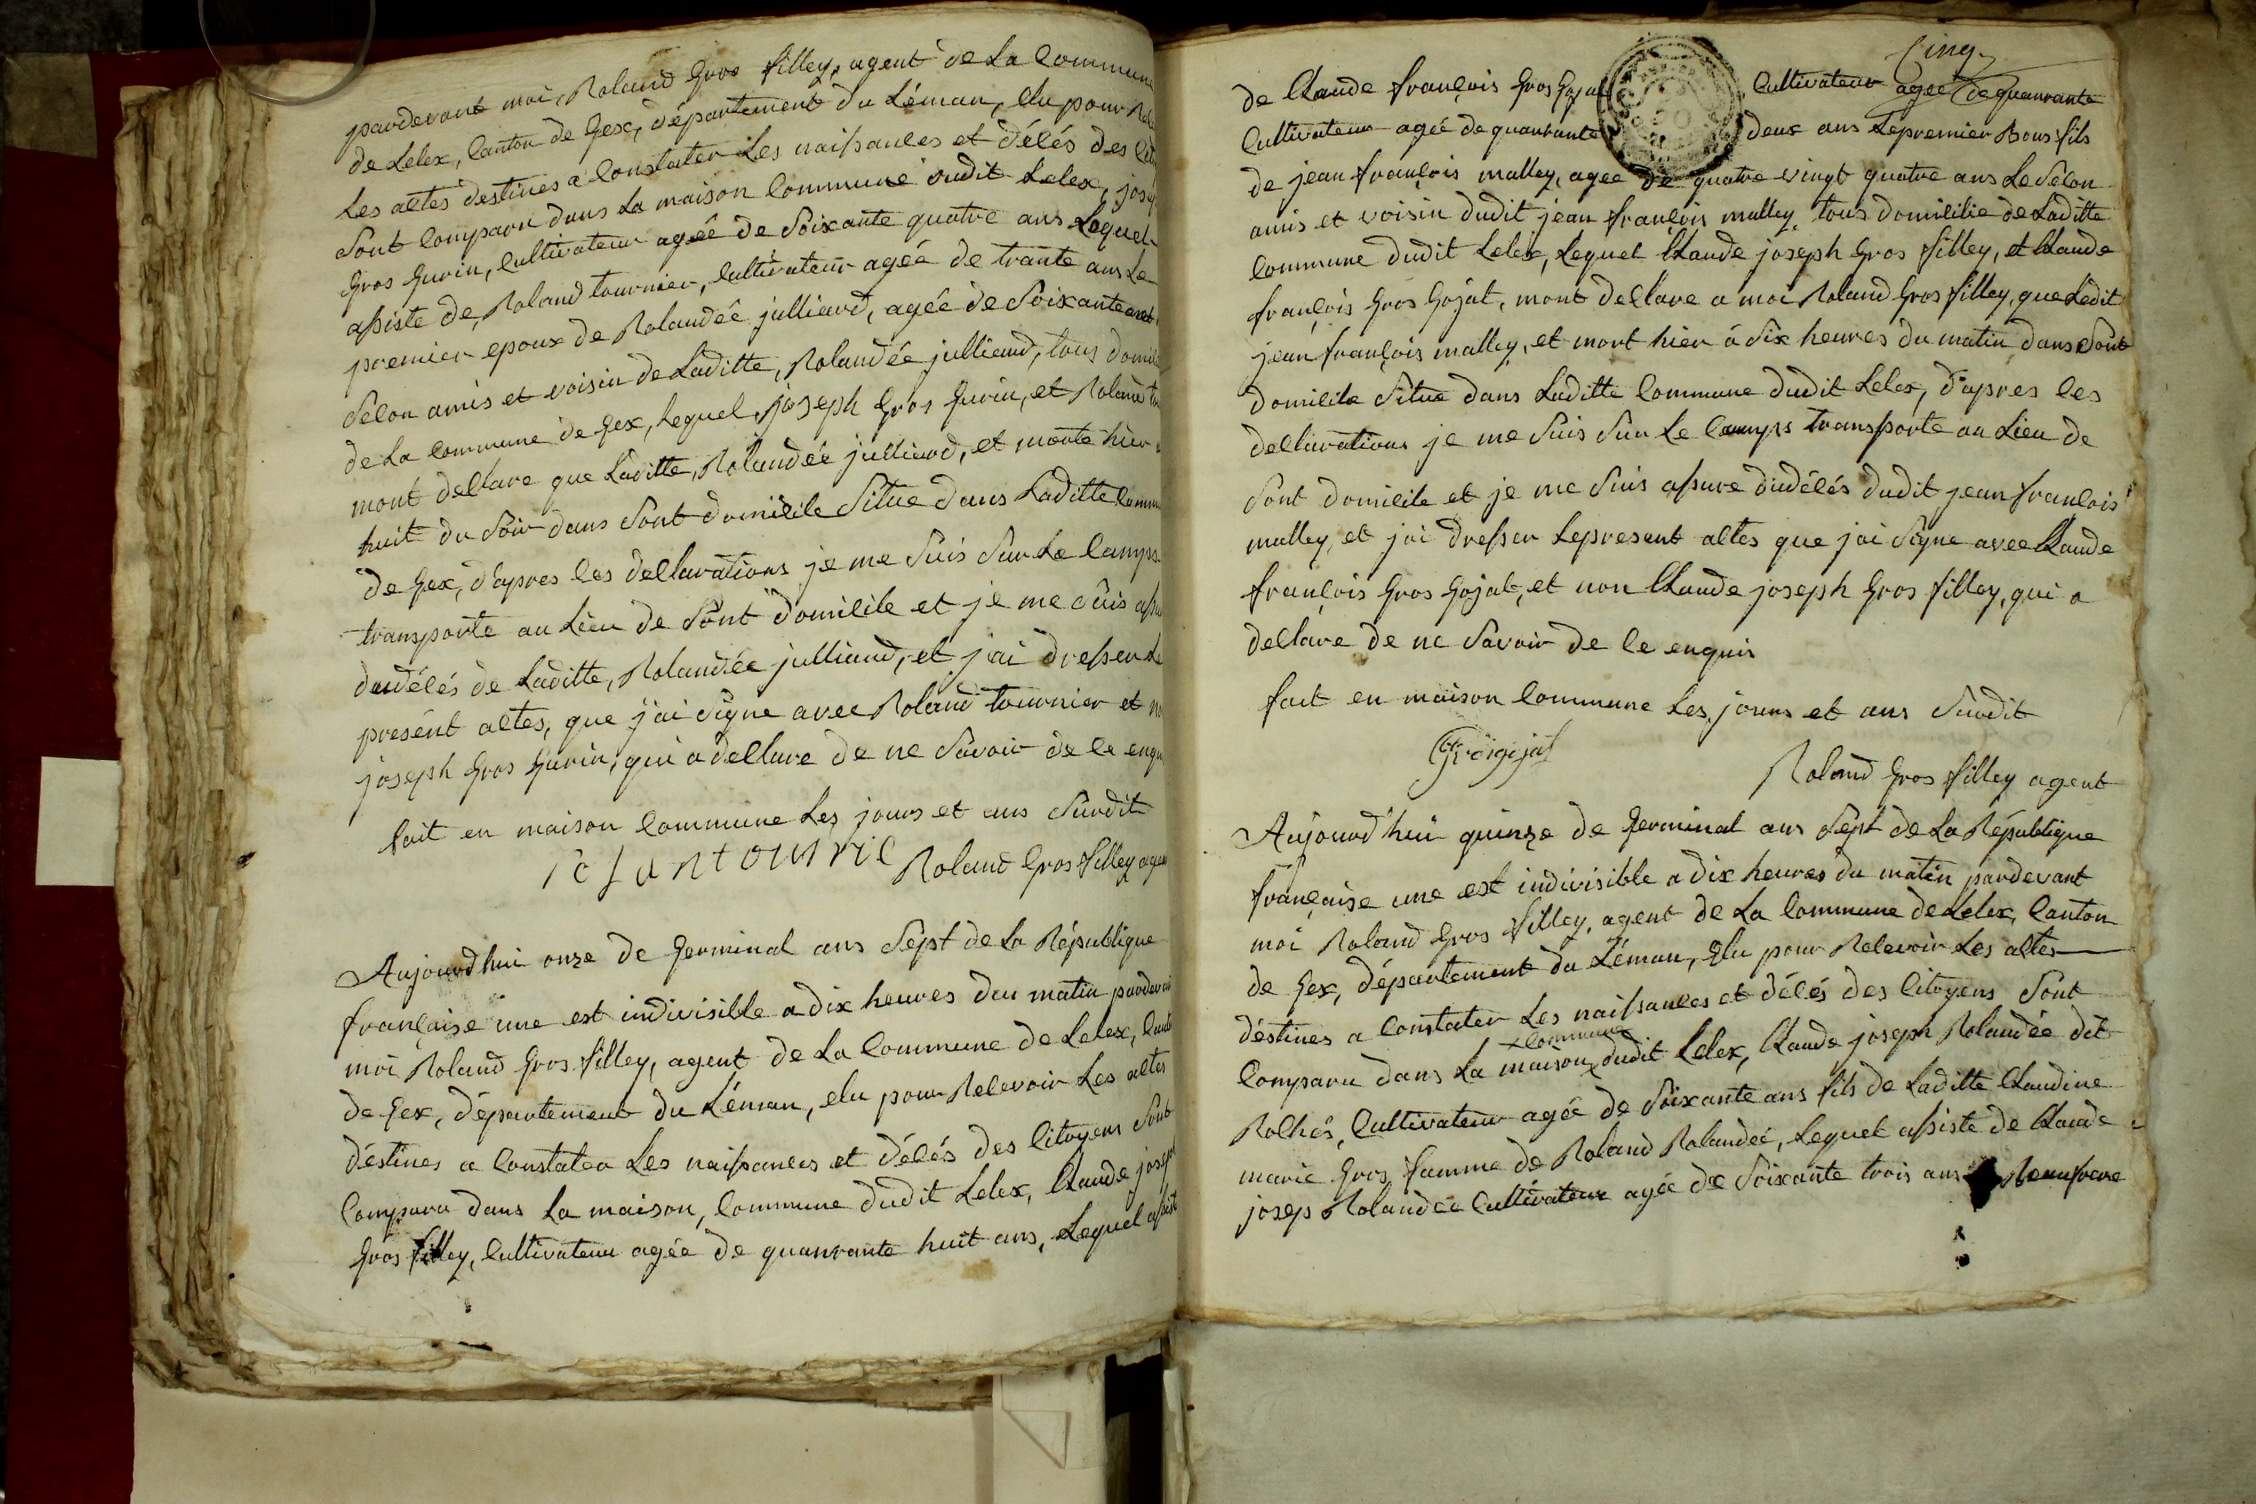 pardevant moi, Roland Gros filley, agent de La Commune
de Lelex, Canton de Gex, département du Léman, élu pour Rele
Les actes destines a Constater Les naissances et décés des Cit
Sont Comparu dans La maison Commune dudit Lelex, jose
Gros Gurin, Cultivateur agéé de Soixante quatre ans Lequel
assiste de, Roland tournier, Cultivateur agéé de trante ans Le
premier epoux de Rolandéé julliard, agéé de Soixante
Sécon amis et voisin de Laditte, Rolandéé julliard, tous domi
de La commune de Gex, Lequel, joseph Gros Gurin, et Roland to
mont declare que Laditte, Rolandéé julliard, et morte hier
huit du Soir dans Sont domicile Situe dans Laditte Commu
de Gex, d'apres ces declarations je me Suis Sur Le Camps
transporte au Lieu de Sont domicile et je me Suis assu
dudécés de Laditte, Rolandéé julliard, et j'ai dresser Le
présent actes, que j'ai Signe avec Roland tournier et no
joseph Gros Gurin, qui a declare de ne Savoir de ce enqu
fait en maison Commune Les jours et ans Surdit
Roland Gros filley agen
Aujourdhui onze de Germinal ans Sept de La République
française une est indivisible a dix heures deu matin pardevan
moi Roland Gros filley, agent de La Commune de Lelex, Cant
de Gex, département du Léman, elu pour Recevoir Les actes
déstines a Constater Les naissances et décés des Citoyens Sont
Comparu dans La maison, Commune dudit Lelex, Claude joseph
Gros filley, Cultivateur agéé de quanrante huit ans, Lequel assist
Cinq
de Claude françois Gros Gojat Cultivateur agéé de quanrante
Cultivateur agéé de quanrante deux ans Le premier Bous fils
de jean françois malley, agee de quatre vingt quatre ans Le Sécon
amis et voisin dudit jean françois malley, tous domicilie de Laditte
Commune dudit Lelex, Lequel Claude joseph Gros filley, et Claude
françois Gros Gojat, mont declare a moi Roland Gros filley, que Ledit
jean françois malley, et mort hier á Six heures du matin dans Sont
domicile Situe dans Laditte Commune dudit Lelex, d'apres ces
declarations je me Suis Sur Le Camps transporte au Lieu de
Sont domicile et je me Suis assure dudécés dudit jean francois
malley, et jai dresser Lepresent actes que jai Signe avec Claude
françois Gros Gojat, et non Claude joseph Gros filley, qui a
declare de ne Savoir de ce enquis
fait en maison Commune Les jours et ans Surdit
Grosgojat
Roland Gros filley agent
Aujourd'hui quinze de Germinal ans Sept de La République
française une est indivisible a dix heures du matin pardevant
moi Roland Gros filley, agent de La Commune de Lelex, Canton
de Gex, département du Léman, élu pour Recevoir Les actes
déstines a Constater Les naissances et décés des Citoyens Sont
Comparu dans La maison x Commune dudit Lelex, Claude joseph Rolandéé dit
Rochés, Cultivateur agéé de Soixante ans fils de Laditte Claudine
marie Gros, famme de Roland Rolandeé, Lequel assiste de Claude
josep Rolandéé Cultivateur agéé de Soixante trois ans Beaufrere